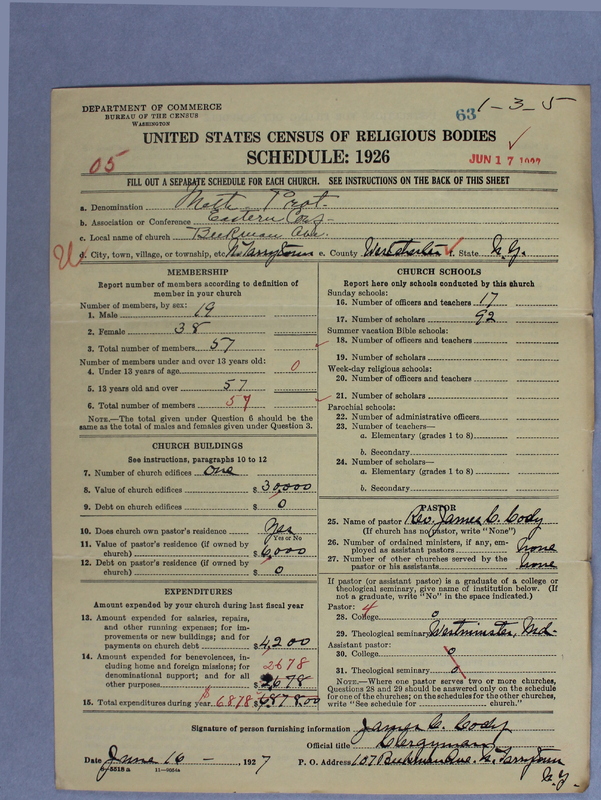 DEPARTMENT OF COMMERCE
BUREAU OF THE CENSUS
WASHINGTON
63
1-3-5
UNITED STATES CENSUS OF RELIGIOUS BODIES
SCHEDULE: 1926
05
JUN 17
FILL OUT A SEPARATE SCHEDULE FOR EACH CHURCH. SEE INSTRUCTIONS ON THE BACK OF THIS SHEET
a. Denomination Meth. Prot.
b. Association or Conference Eastern Conf
c. Local name of church Beekman Ave.
d. City, town, village, or township, etc. No. Tarrytown e. County Westchester f. State N.Y.
MEMBERSHIP
Report number of members according to definition of member in your church
Number of members, by sex:
1. Male 19
2. Female 38
3. Total number of members 57
Number of members under and over 13 years old:
4. Under 13 years of age 0
5. 13 years old and over 57
6. Total number of members 57
NOTE.—The total given under Question 6 should be the
same as the total of males and females given under Question 3.
CHURCH BUILDINGS
See instructions, paragraphs 10 to 12
7. Number of church edifices one
8. Value of church edifices $ 30,000
9. Debt on church edifices $ 0
10. Does church own pastor's residence Yes
Yes or No
11. Value of pastor's residence (if owned by
church) $ 6,000
12. Debt on pastor's residence (if owned by
church) $ 0
EXPENDITURES
Amount expended by your church during last fiscal year
13. Amount expended for salaries, repairs,
and other running expenses; for im-
provements or new buildings; and for
payments on church debt $ 4,200
14. Amount expended for benevolences, in-
cluding home and foreign missions; for
denominational support; and for all
other purposes $ 2678
2678
15. Total expenditures during year $6878 $ 6878.00
CHURCH SCHOOLS
Report here only schools conducted by this church
Sunday schools:
16. Number of officers and teachers 17
17. Number of scholars 92
Summer vacation Bible schools:
18. Number of officers and teachers
19. Number of scholars
Week-day religious schools:
20. Number of officers and teachers
21. Number of scholars
Parochial schools:
22. Number of administrative officers
23. Number of teachers—
a. Elementary (grades 1 to 8)
b. Secondary
24. Number of scholars—
a. Elementary (grades 1 to 8)
b. Secondary
PASTOR
25. Name of pastor Rev. James C. Cody
(If church has no pastor, write "None")
26. Number of ordained ministers, if any, em-
ployed as assistant pastors none
27. Number of other churches served by the
pastor or his assistants none
If pastor (or assistant pastor) is a graduate of a college or
theological seminary, give name of institution below. (If
not a graduate, write "No" in the space indicated.)
Pastor: 4
28. College 0
29. Theological seminary Westminster, Md.
Assistant pastor:
30. College 0
31. Theological seminary 0
NOTE.—Where one pastor serves two or more churches,
Questions 28 and 29 should be answered only on the schedule
for one of the churches; on the schedules for the other churches,
write "See schedule for church."
Signature of person furnishing information James C. Cody
Official title Clergyman
Date June 16 -, 1927 P. O. Address 107 Beekman Ave. N. Tarrytown
N.Y.
8-5518 a 11-9054a